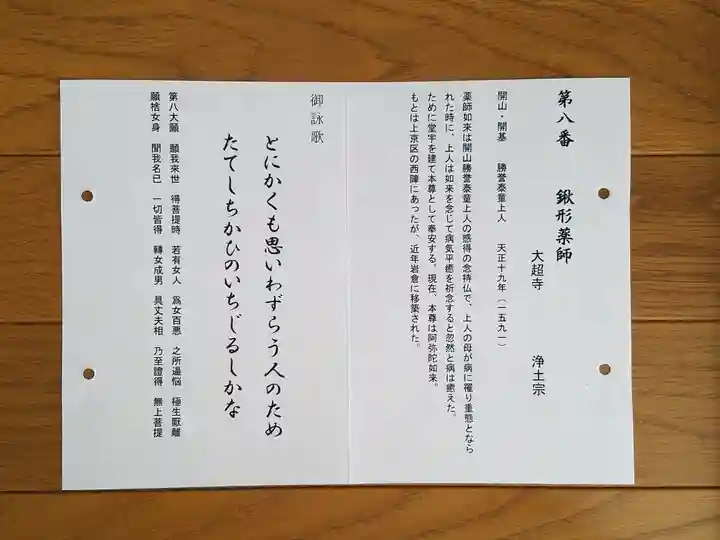 第八番　鍬形薬師
大超寺　浄土宗
開山・開基　勝誉泰童上人　天正十九年（一五九一）
薬師如来は開山勝誉泰童上人の感得の念持仏で、上人の母が病に罹り重態となら
れた時に、上人は如来を念じて病気平癒を祈念すると忽然と病は癒えた。
ために堂宇を建て本尊として奉安する。現在、本尊は阿弥陀如来。
もとは上京区の西陣にあったが、近年岩倉に移築された。
御詠歌
とにかくも思いわずらう人のため
たてしちかひのいちじるしかな
第八大願　願我来世　得菩提時　若有女人　為女百悪　之所逼悩　極生厭離
願捨女身　聞我名已　一切皆得　轉女成男　具丈夫相　乃至證得　無上菩提